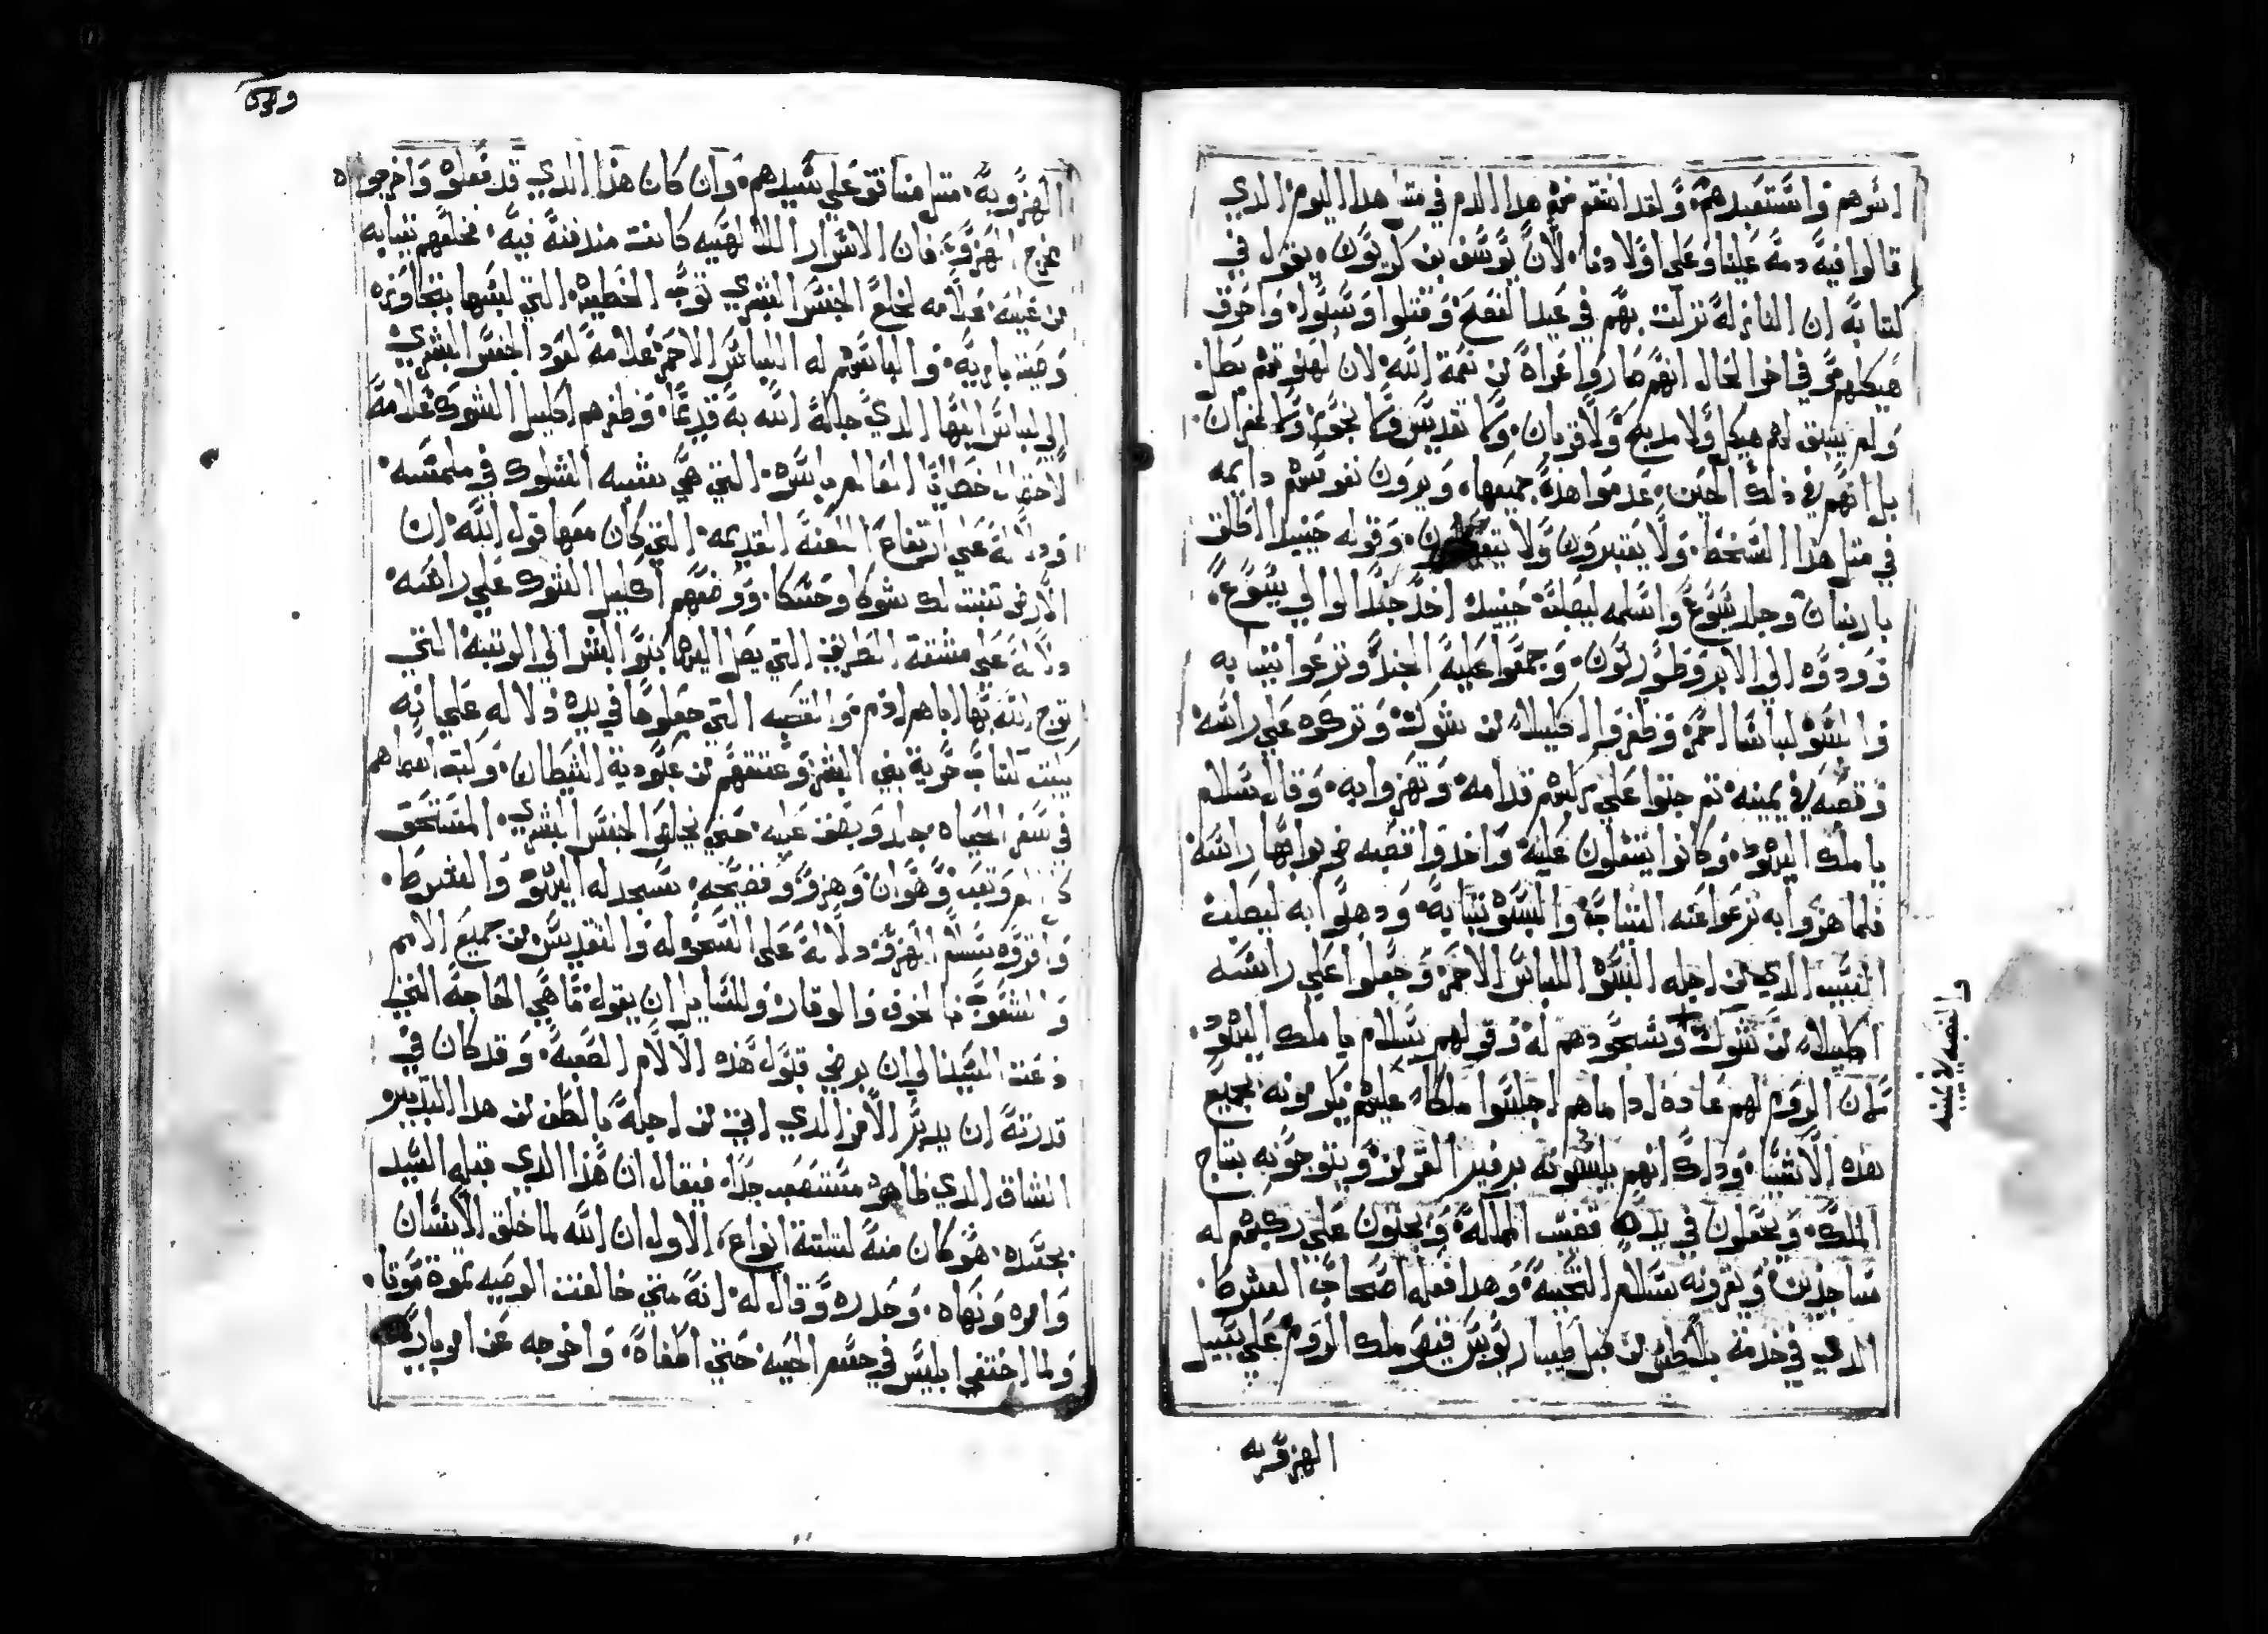 اسرهم واستعبدهم، ولقد انتقم منهم هدا الدم في متل هدا اليوم الدي
قالوا فيه دمه علينا وعلى اولادنا، لان يوسف بن كريون، يقول في
كتابه ان النازله نزلت بهم في عيد الفصح وقتلوا وسبوا، واحرق
هيكلهم في اخر الحال انهم صاروا عراة من نعمة الله، لان كهنوتهم بطل
ولم يبق لهم هيكل ولا مدبح ولا قربان، ولا تقديس ولا بخور ولا غفران
بل انهم في ذلك الحين، عدموا هذه جميعها، ويرون نفوسهم دايمه
في متل هذا السخط، ولا يعتبرون ولا، وقوله حينيد اطلق
باربنان وجلد يسوع واسلمه ليصلب، حينيد اخد جند الوالي يسوع،
وودوه الي الابروطوريون، وجمعوا عليه الجند ونزعوا تيابه
والبسوه لباسا احمر وظفروا اكليلا من شوك وتركوه على راسه
وقصبه في يمينه، تم جتوا على ركبهم قدامه، وتهزوا به، وقالوا السلام
يا ملك اليهود، وكانوا يتفلون عليه، واخدوا قصبه ضربوا بها راسه
فلما هزوا به نزعوا عنه التياب، والبسوه تيابه، ودهبوا به ليصلب
السبب الدي من اجله البسوه اللباس الاحمر وجعلوا على راسه
اكليلا من شوك وسجودهم له وقولهم السلام يا ملك اليهود،
لان الروم لهم عاده ادا ما هم اجلسوا ملكا عليهم يكرمونه بجميع
هده الاشيا، ودلك انهم يلبسونه برفير القرمز ويتوجونه بتاج
الملك، ويجعلون في يده قضيب المملكه، ويجتون على ركبهم له
ساجدين، ويقرونه سلام التحيه، وهدا فعله اصحاب الشرط،
الدي في خدمة بيلاطس من قبل طيباريوس قيصر ملك الروم، على سبيل
والقصبه لا يمينه
الهزو به
الهزو به، متل منافق على سيدهم، وان كان هذا الدي قد فعلوه واخرجوه
مخرج الهزو، فان الاسرار الالهيه كانت مندفنة فيه، فخلعهم تيابه
من عليه علامه لخلع الجنس البشري توب الخطيه، التي لبسها بتجاوزه
وصية باريه، والباسهم له اللباس الاحمر علامة لعود الجنس البشري
الي لباس البها الدي جلله الله به قديما، وظفرهم اكليل الشوك علامة
لاحتمال خطايا العالم باسره، التي هي تشبه الشوك في ملمسه،
ودلالة على ارتفاع اللعنة القديمه، التي كان معها قول الله، ان
الارض تنبت لك شوكا وحسكا، ووضعهم اكليل الشوك على راسه،
دلالة على مشقة الطريق التي يصل اليها بنوا البشر الي الرتبة التي
توج الله بها اباهم ادم، والقصبه التي جعلوها في يده دلاله على انه
يكتب كتاب حرية بني البشر وعتقهم من عبودية الشيطان، وكتب اسماهم
في سفر الحياه، جلد وبصق عليه، حتي يخلص الجنس البشري، المستحق
وتعب وهوان وهزو وفضيحه، سجد له اليهود والشرط،
واقروه سلام الهزو دلالة على السجود له والتقديس من جميع الامم
والشعوب بالخوف والوقار، وللسايل ان يقول، ما هي الحاجه التي
دعت السيد الي ان يرضي بقبول هذه الالام الصعبه، وقد كان في
قدرته ان يدبر الامر الدي اتي من اجله بالطف من هدا التدبير
الشاق الدي ظاهره مستصعب جدا، فيقال ان هذا الدي قبله السيد
بجسده، هو كان منه لتلتة انواع، الاول ان الله لما خلق الانسان
وامره ونهاه، وحدره وقال له، انه متي خالفت الوصيه تموت موتا،
ولما اختفي ابليس في جسم الحيه حتي اطغاه، واخرجه عن امر باريه